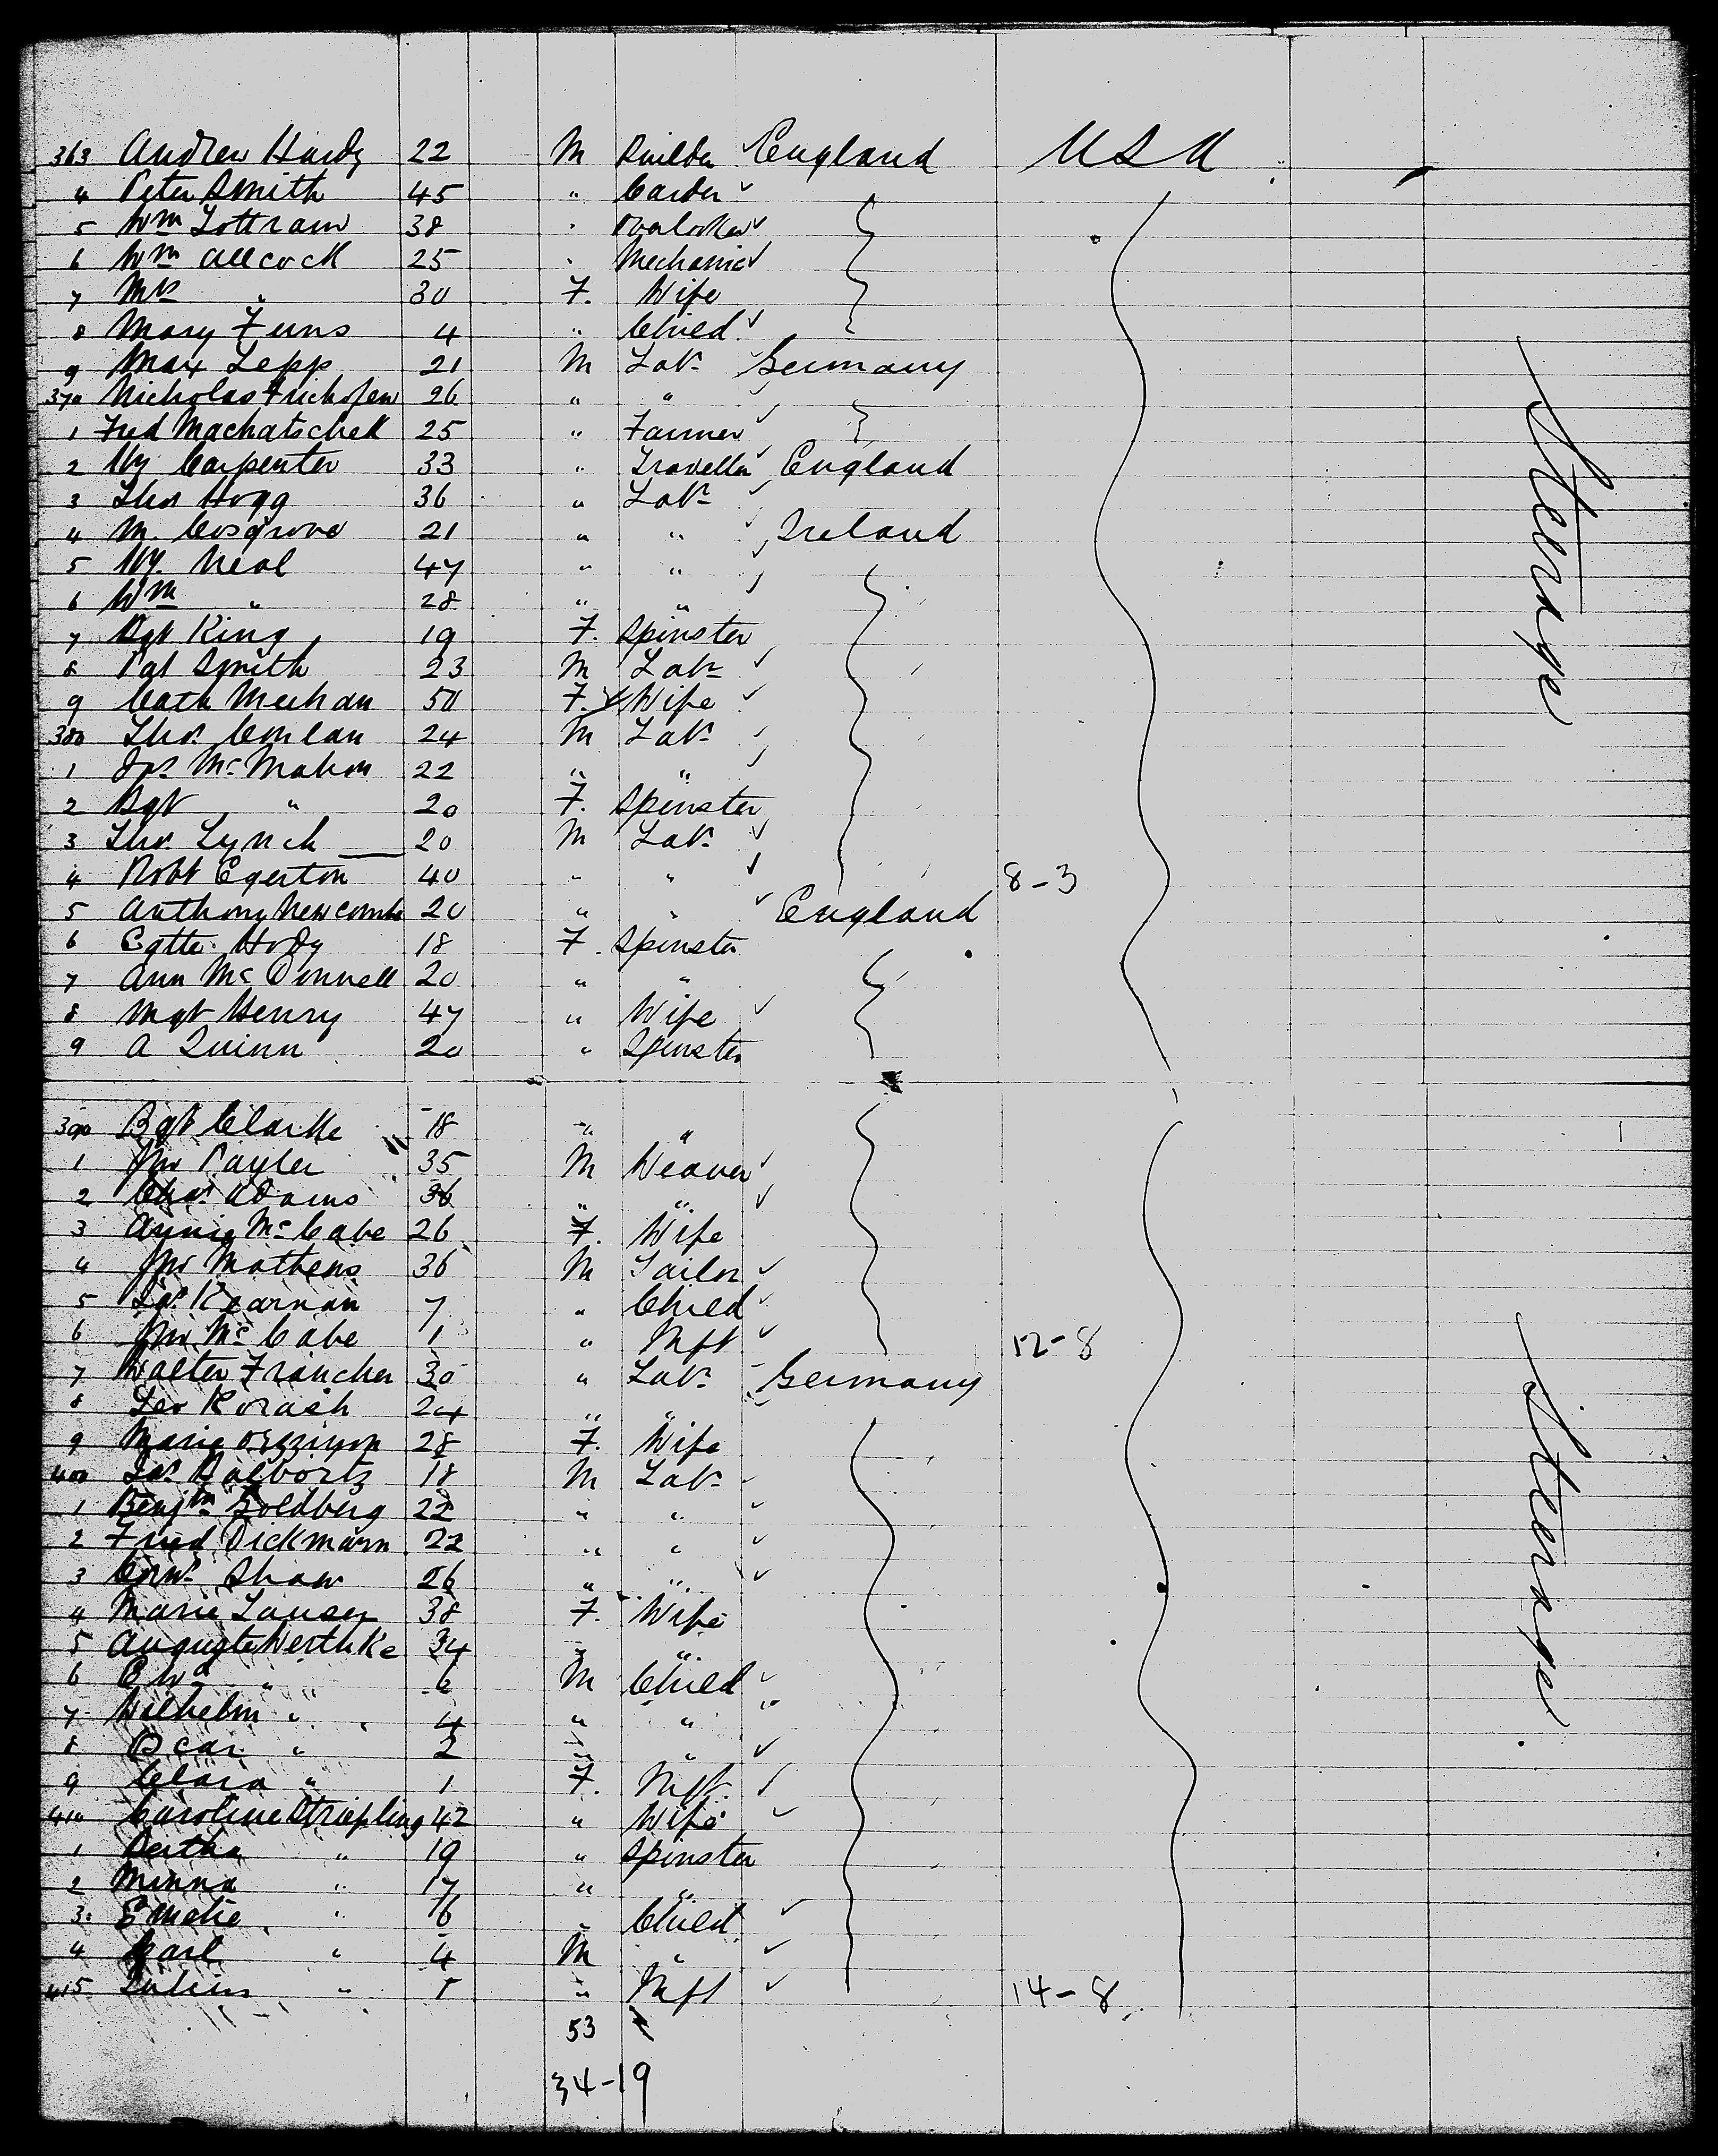 363 Andrew Hardy 22 M Builder England USA
4 Peter Smith 45 " Carder
5 Wm Tottram 38 " Overlooker
6 Wm Allcock 25 " Mechanic
7 Mrs " 30 F. Wife
8 Mary Funs 4 " Child
9 Max Lepp 21 M Labr Germany
370 Nicholas 26 " "
1 Fred Machatschek 25 " Farmer
2 Hy Carpenter 33 " Traveller England
3 Thos Hogg 36 " Labr
4 M. Cosgrove 21 " " Ireland
5 Hy. Neal 47 " "
6 Wm " 28 " "
7 Bgt King 19 F. Spinster
8 Pat Smith 23 M Labr
9 Cath Meehan 50 F. Wife
380 Thos. Conlan 24 M Labr
1 Jas McMahon 22 " "
2 Bgt " 20 F. Spinster
3 Thos. Lynch 20 M Labr
4 Robt Egerton 40 " " 8-3
5 Anthony Newcombe 20 " " England
6 18 F. Spinster
7 Ann McDonnell 20 " "
8 Mgt Henry 47 " Wife
9 A Quinn 20 " Spinster
390 Bgt Clarke 18 " "
1 Jno Payler 35 M Weaver
2 Chas. Adams 36 " "
3 Annie McCabe 26 F. Wife
4 Jno Mathens 36 M Tailor
5 Jas. Kearnan 7 " Child
6 Jno McCabe 1 " Inft 12-8
7 Walter Francher 30 " Labr Germany
8 Leo Korash 24 " "
9 Marie 28 F. Wife
400 Jas. 18 M Labr
1 Benjtn Goldberg 22 " "
2 Fried Dickmann 22 " "
3 Shaw 26 " "
4 Marie Lausen 38 F. Wife
5 Auguste Werthke 34 " "
6 Ewd " 6 M Child
7 Wilhelm " 4 " "
8 Oscar " 2 " "
9 Clara " 1 F. Inft
410 Caroline Striepling 42 " Wife
1 Bertha " 19 " Spinster
2 Minna " 17 " "
3 Emelie " 6 " Child
4 Carl " 4 M "
415 Julius " 1 " Inft 14-8
53
34-19
Steerage
Steerage